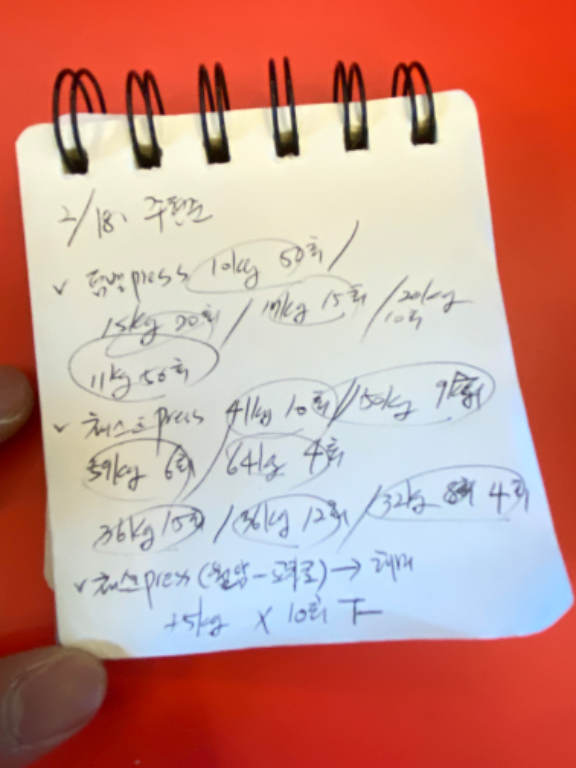 2/18.
press 10kg 50회 /
15kg 20회 / 17kg 15회 / 20kg 10회
11kg 50회
체스트 press 41kg 10회 / 50kg
59kg 6회 / 64kg 4회
36kg 15회 / 36kg 12회 / 32kg 4회
체스트 press →
+5kg × 10회